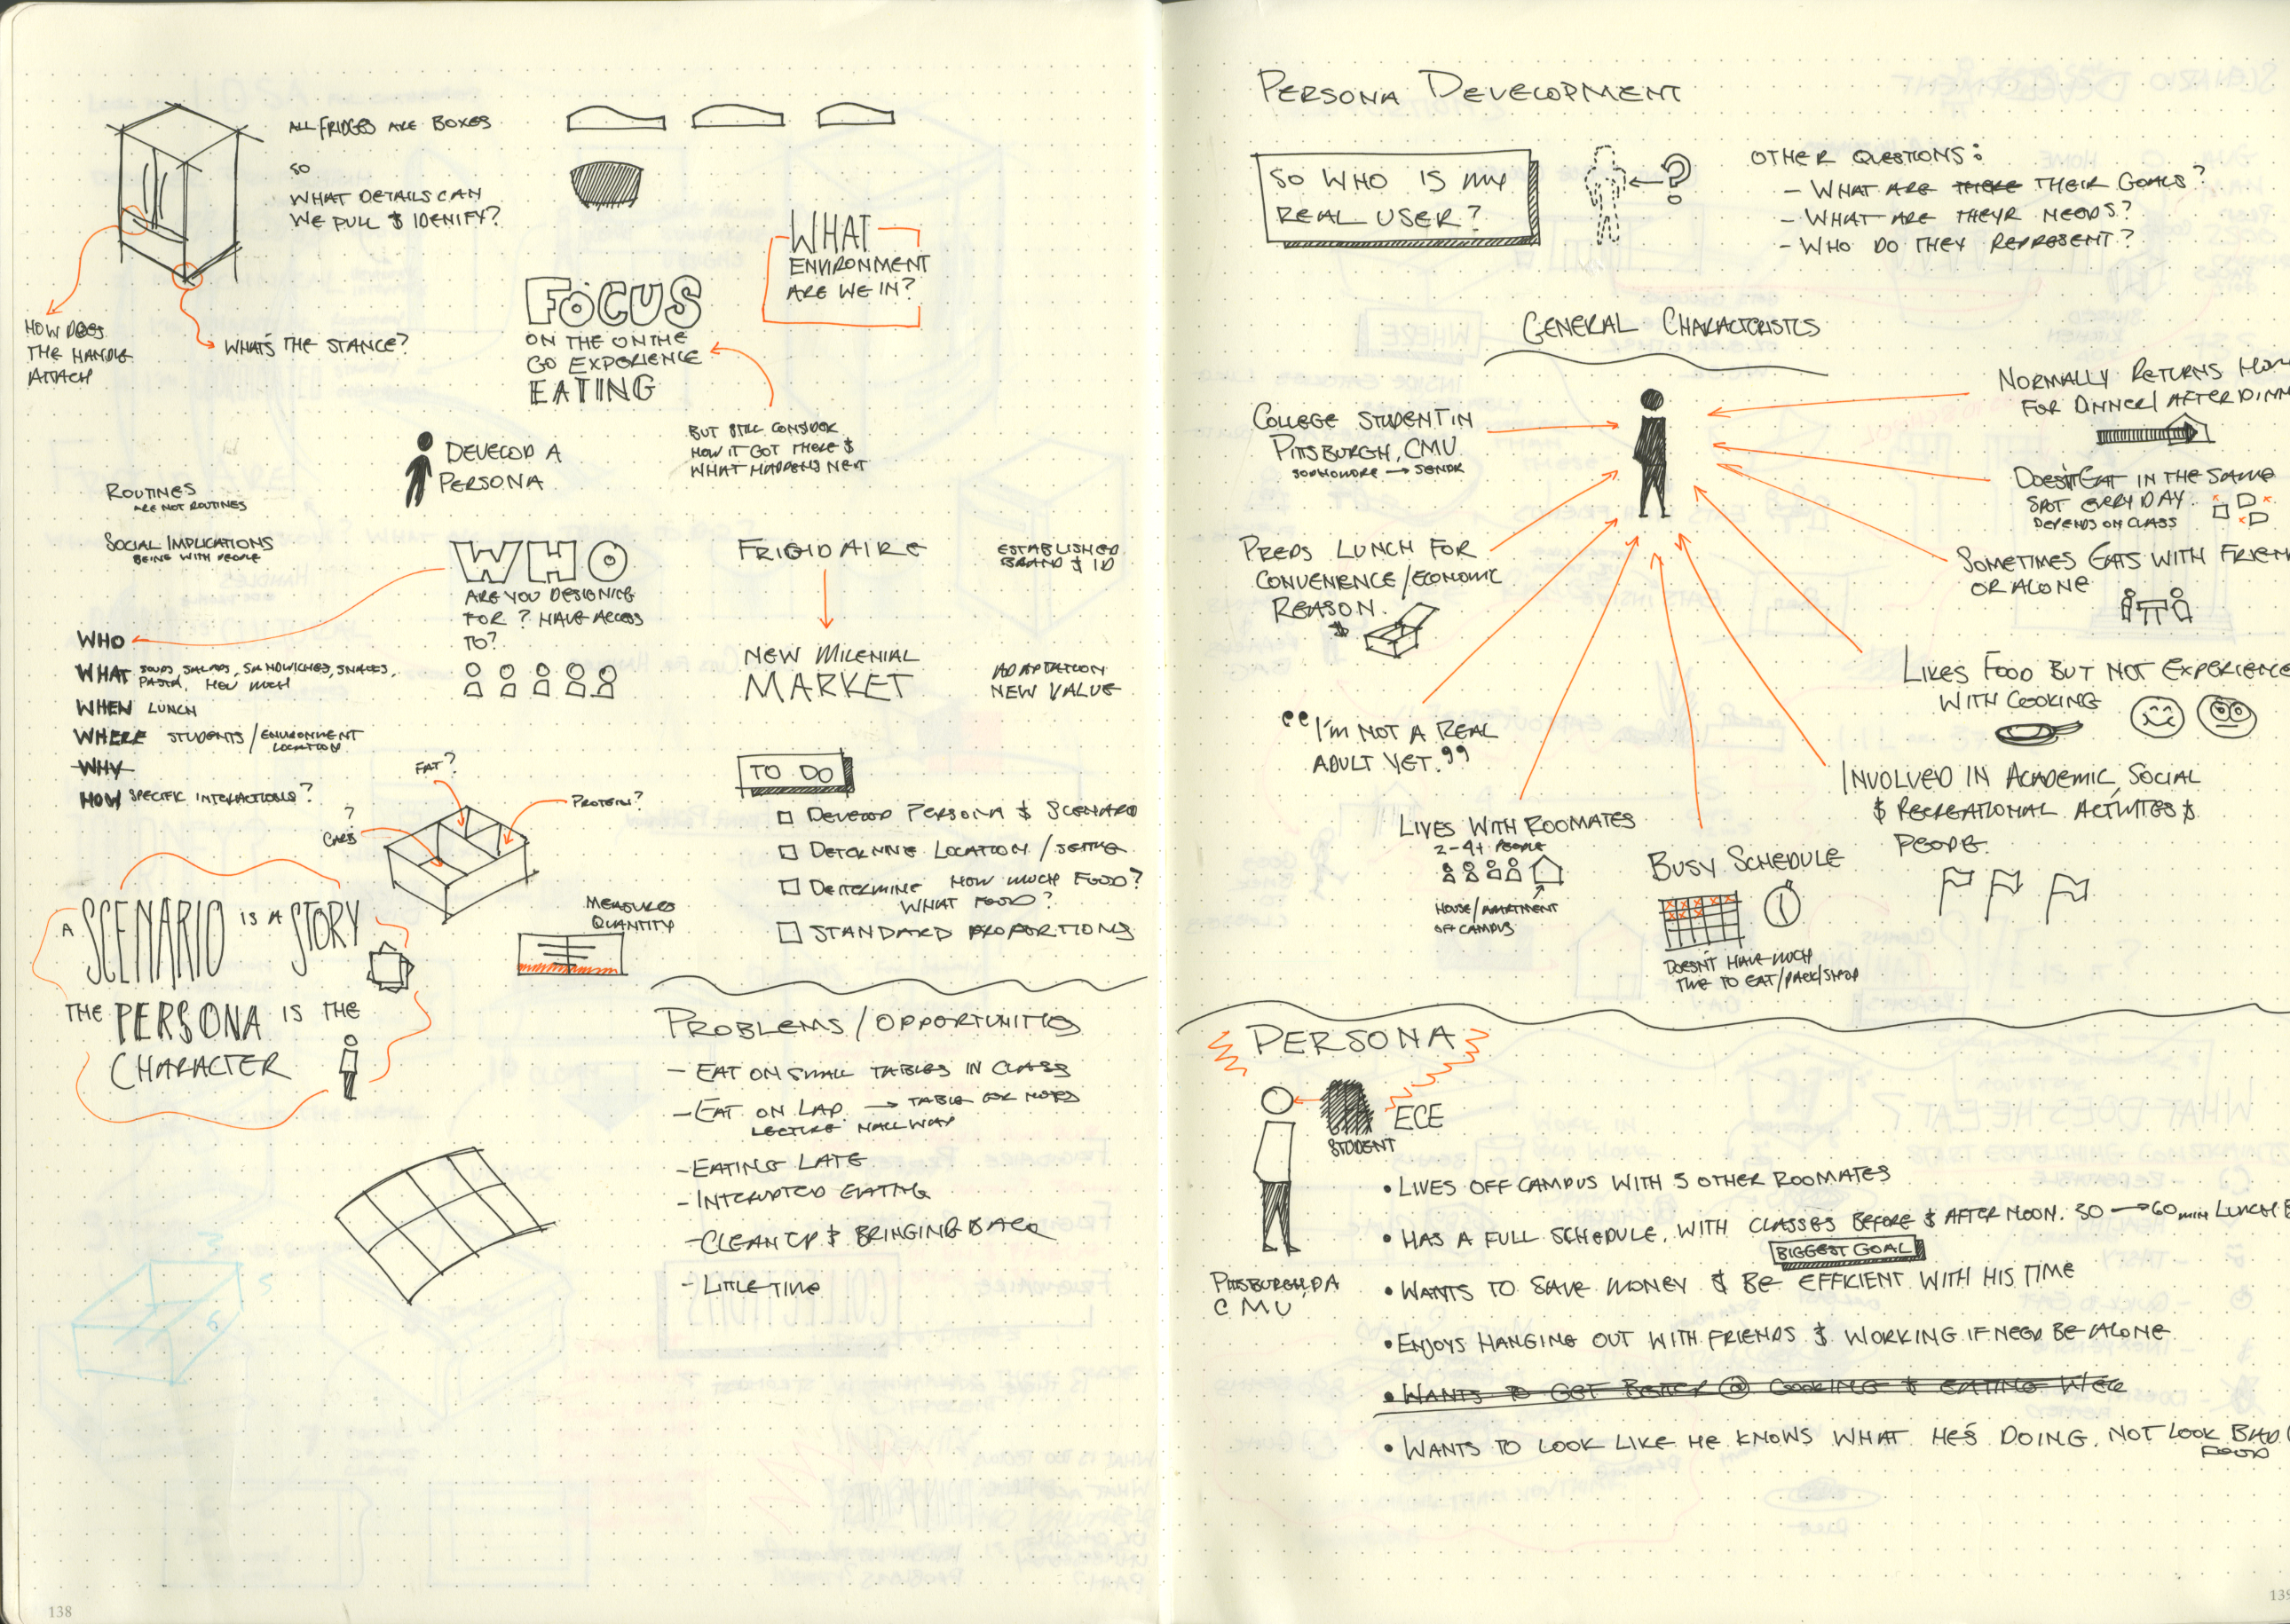 ALL FRIDGES ARE BOXES
SO
WHAT DETAILS CAN
WE PULL & IDENIFY?
HOW DOES
THE HANDLE
ATTACH
WHAT'S THE STANCE?
WHAT
ENVIRONMENT
ARE WE IN?
FOCUS
ON THE ON THE
GO EXPERIENCE
EATING
BUT STILL CONSIDER
HOW IT GOT THERE &
WHAT HAPPENS NEXT
DEVELOP A
PERSONA
ROUTINES
ARE NOT ROUTINES
SOCIAL IMPLICATIONS
BEING WITH PEOPLE
WHO
ARE YOU DESIGNING
FOR? HAVE ACCESS
TO?
FRIGIDAIRE
ESTABLISHED
BRAND & ID
NEW MILENIAL
MARKET
ADAPTATION
NEW VALUE
WHO
WHAT SOUPS, SALADS, SANDWICHES, SNACKS,
PASTA, HOW MUCH
WHEN LUNCH
WHERE STUDENTS/ENVIRONMENT
LOCATION
WHY
HOW SPECIFIC INTERACTIONS?
FAT?
PROTEIN?
?
CARBS
TO DO
DEVELOP PERSONA & SCENARIO
DETERMINE LOCATION/SETTING
DETERMINE HOW MUCH FOOD?
WHAT FOOD?
STANDARD PROPORTIONS
MEASURES
QUANTITY
A SCENARIO IS A STORY
THE PERSONA IS THE
CHARACTER
PROBLEMS/OPPORTUNITIES
- EAT ON SMALL TABLES IN CLASS
- EAT ON LAP → TABLE FOR NOTES
LECTURE HALLWAY
- EATING LATE
- INTERUPTED EATING
- CLEAN UP & BRINGING BACK
- LITTLE TIME
138
PERSONA DEVELOPMENT
SO WHO IS MY
REAL USER?
?
OTHER QUESTIONS:
- WHAT ARE THERE THEIR GOALS?
- WHAT ARE THEYR NEEDS?
- WHO DO THEY REPRESENT?
GENERAL CHARACTERISTICS
COLLEGE STUDENT IN
PITTSBURGH, CMU
SOPHOMORE → SENIOR
PREPS LUNCH FOR
CONVENIENCE/ECONOMIC
REASON.
$
"I'M NOT A REAL
ADULT YET."
LIVES WITH ROOMATES
2-4+ PEOPLE
HOUSE/APARTMENT
OFF CAMPUS
BUSY SCHEDULE
DOESN'T HAVE MUCH
TIME TO EAT/PACK/SHOP
NORMALLY RETURNS HOM
FOR DINNER/AFTER DINN
DOESN'T EAT IN THE SAME
SPOT EVERY DAY.
DEPENDS ON CLASS
SOMETIMES EATS WITH FRIEN
OR ALONE
LIKES FOOD BUT NOT EXPERIENCE
WITH COOKING
INVOLVED IN ACADEMIC, SOCIAL
& RECREATIONAL ACTIVITIES &
PEOPLE.
PERSONA
ECE
STUDENT
PITTSBURGH, PA
CMU
• LIVES OFF CAMPUS WITH 3 OTHER ROOMATES
• HAS A FULL SCHEDULE, WITH CLASSES BEFORE & AFTER NOON. SO → 60 MIN LUNCH B
BIGGEST GOAL
• WANTS TO SAVE MONEY & BE EFFICIENT WITH HIS TIME
• ENJOYS HANGING OUT WITH FRIENDS & WORKING IF NEED BE ALONE
• WANTS TO GET BETTER @ COOKING & EATING WELL
• WANTS TO LOOK LIKE HE KNOWS WHAT HE'S DOING, NOT LOOK BAD
FOOD
139